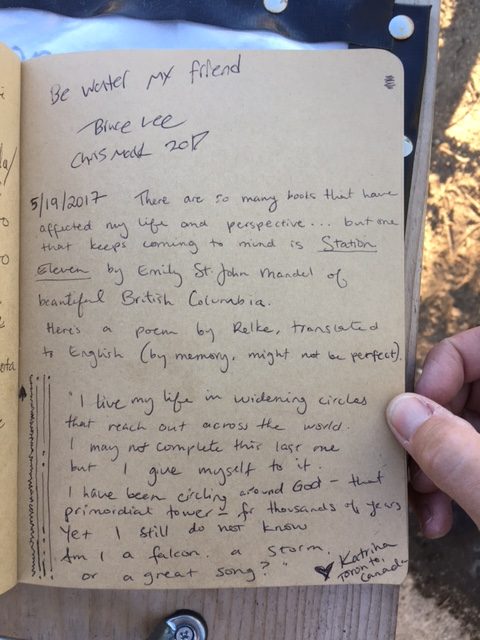 Be water my friend
Bruce Lee
Chris Madd 2017
5/19/2017 There are so many books that have
affected my life and perspective... but one
that keeps coming to mind is Station
Eleven by Emily St John Mandel of
beautiful British Columbia.
Here's a poem by Relke, translated
to English (by memory, might not be perfect).
"I live my life in widening circles
that reach out across the world.
I may not complete this last one
but I give myself to it.
I have been circling around God - that
primordial tower - for thousands of years
Yet I still do not know
Am I a falcon, a storm,
or a great song?"
♥ Katrina
Toronto,
Canada